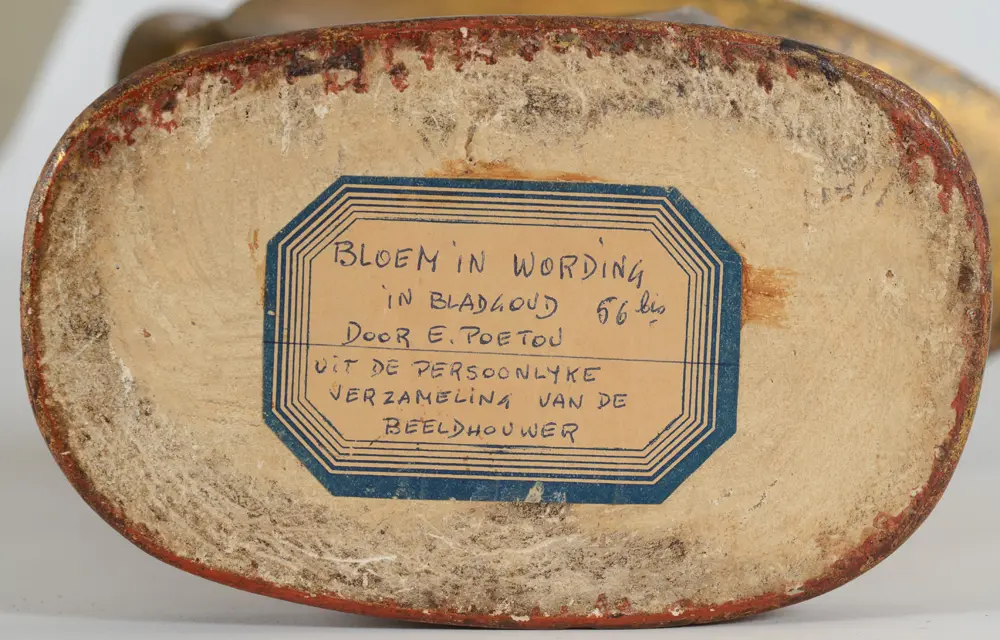 BLOEM IN WORDING
IN BLADGOUD 56 bis
DOOR E. POETOU
UIT DE PERSOONLYKE
VERZAMELING VAN DE
BEELDHOUWER